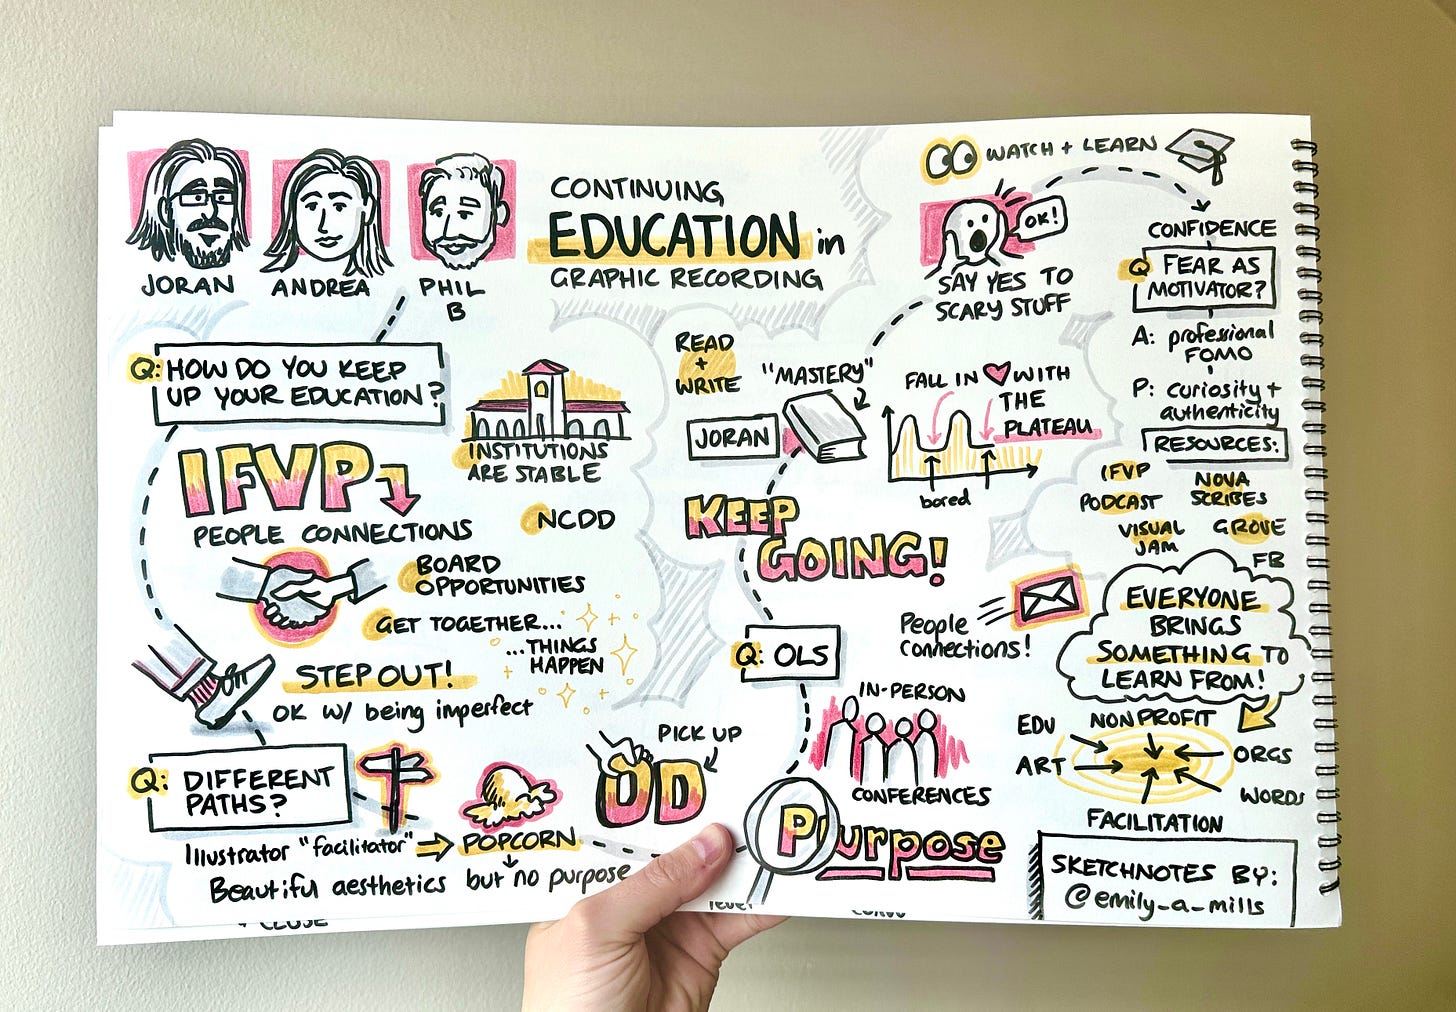 JORAN
ANDREA
PHIL
B
CONTINUING
EDUCATION in
GRAPHIC RECORDING
Q: HOW DO YOU KEEP
UP YOUR EDUCATION?
IFVP
PEOPLE CONNECTIONS
INSTITUTIONS
ARE STABLE
NCDD
BOARD
OPPORTUNITIES
GET TOGETHER...
...THINGS
HAPPEN
STEP OUT!
OK W/ being imperfect
Q: DIFFERENT
PATHS?
Illustrator "facilitator"
POPCORN
Beautiful aesthetics but no purpose
PICK UP
OD
Purpose
READ
+
WRITE
"MASTERY"
JORAN
KEEP
GOING!
Q: OLS
IN-PERSON
CONFERENCES
WATCH + LEARN
OK!
SAY YES TO
SCARY STUFF
FALL IN WITH
THE
PLATEAU
bored
CONFIDENCE
Q FEAR AS
MOTIVATOR?
A: professional
FOMO
P: curiosity +
authenticity
RESOURCES:
IFVP
PODCAST
NOVA
SCRIBES
VISUAL
JAM
GROVE
FB
People
connections!
EVERYONE
BRINGS
SOMETHING TO
LEARN FROM!
EDU
NONPROFIT
ART
ORGS
WORDS
FACILITATION
SKETCHNOTES BY:
@emily_a_mills
+ CLOSE